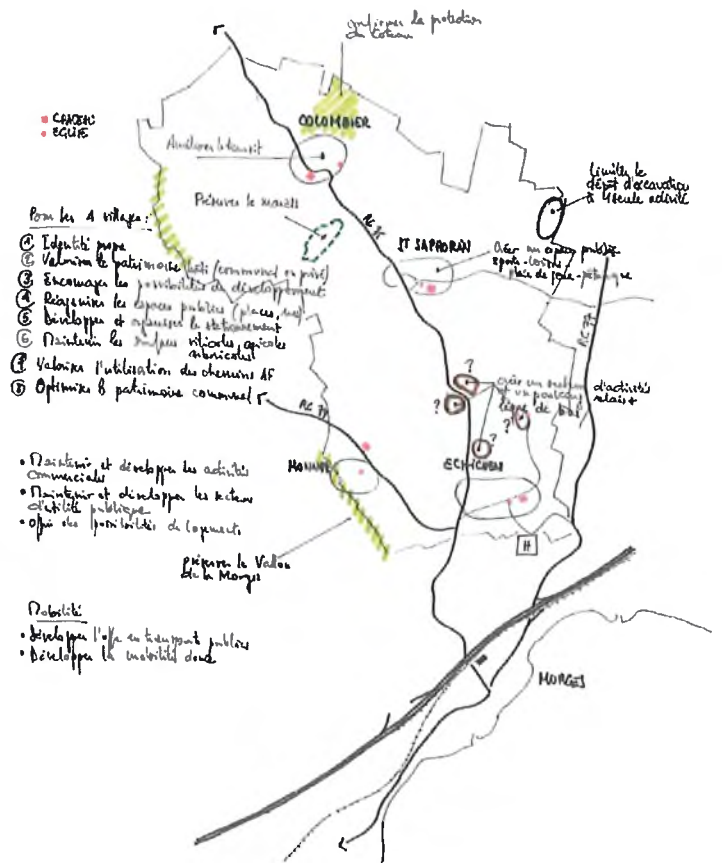 la protection
du Coteau
COLOMBIER
CHATEAU
EGLISE
Améliorer le transit
Préserver le marais
RC 75
ST SAPHORIN
Créer un espace public
sports-loisirs
plaine de jeux-pétanque
Limiter le
dépôt d'excavation
à la seule activité
RC 77
Pour les 4 villages :
① Identité propre
② Valoriser le patrimoine bâti (communal ou privé)
③ Encourager les possibilités de développement
④ Réorganiser les espaces publics (places, rues)
⑤ Développer et organiser le stationnement
⑥ Maintenir les surfaces viticoles, agricoles
⑦ Valoriser l'utilisation des chemins AF
⑧ Optimiser le patrimoine communal
RC 79
?
?
?
?
créer un secteur d'activités
et un parking relais +
ligne de bus
MONNAZ
ECHICHENS
H
• Maintenir et développer les activités
commerciales
• Maintenir et développer les secteurs
d'utilité publique
• Offrir des possibilités de logements
préserver le Vallon
de la Morges
Mobilité
• Développer l'offre en transport publics
• Développer la mobilité douce
MORGES